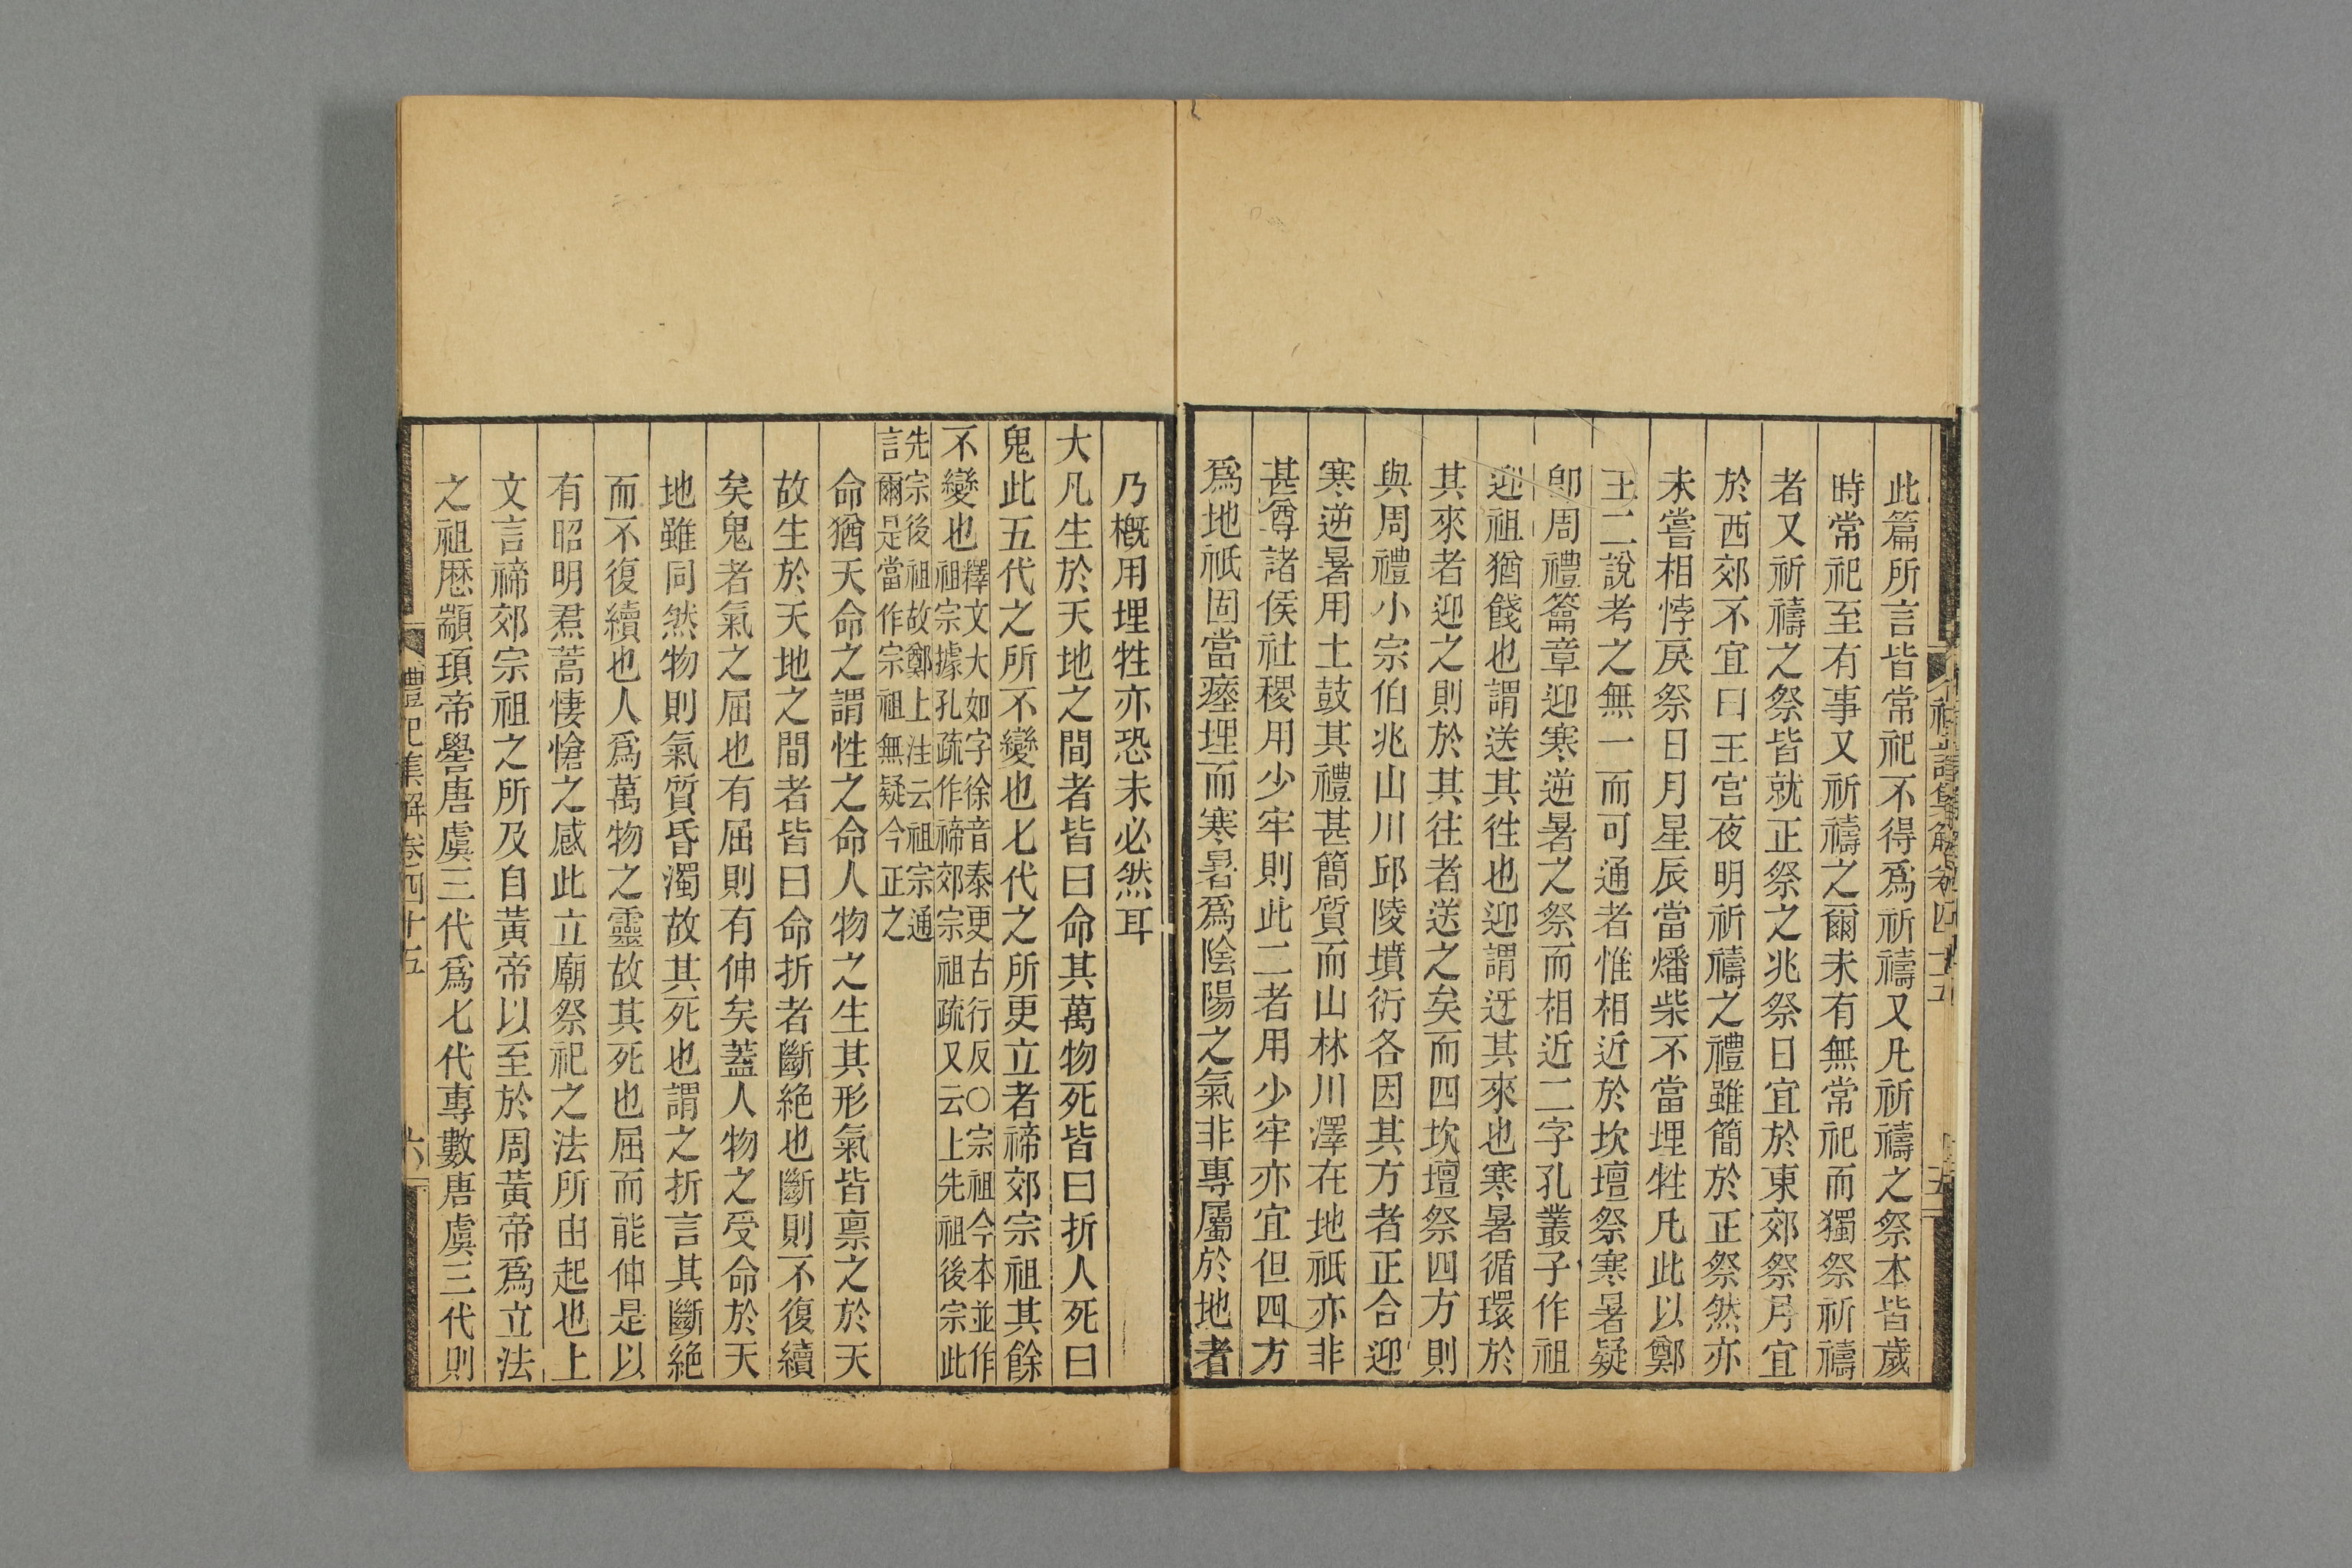 此篇所言皆常祀不得爲祈禱又凡祈禱之祭本皆歲
時常祀至有事又祈禱之爾未有無常祀而獨祭祈禱
者又祈禱之祭皆就正祭之兆祭日宜於東郊祭月宜
於西郊不宜曰王宮夜明祈禱之禮雖簡於正祭然亦
未嘗相悖戾祭日月星辰當燔柴不當埋牲凡此以鄭
王二說考之無一而可通者惟相近於坎壇祭寒暑疑
卽周禮籥章迎寒逆暑之祭而相近二字孔叢子作祖
迎祖猶餞也謂送其往也迎謂迓其來也寒暑循環於
其來者迎之則於其往者送之矣而四坎壇祭四方則
與周禮小宗伯兆山川邱陵墳衍各因其方者正合迎
寒逆暑用土鼓其禮甚簡質而山林川澤在地祇亦非
甚尊諸侯社稷用少牢則此二者用少牢亦宜但四方
爲地祇固當瘞埋而寒暑爲陰陽之氣非專屬於地者
乃槪用埋牲亦恐未必然耳
大凡生於天地之間者皆曰命其萬物死皆曰折人死曰
鬼此五代之所不變也七代之所更立者禘郊宗祖其餘
不變也釋文大如字徐音泰更古行反〇宗祖今本並作
祖宗據孔疏作禘郊宗祖疏又云上先祖後宗此
先宗後祖故鄭上注云祖宗通
言爾是當作宗祖無疑今正之
命猶天命之謂性之命人物之生其形氣皆禀之於天
故生於天地之間者皆曰命折者斷絶也斷則不復續
矣鬼者氣之屈也有屈則有伸矣蓋人物之受命於天
地雖同然物則氣質昏濁故其死也謂之折言其斷絶
而不復續也人爲萬物之靈故其死也屈而能伸是以
有昭明焄蒿悽愴之感此立廟祭祀之法所由起也上
文言禘郊宗祖之所及自黃帝以至於周黃帝爲立法
之祖歷顓頊帝嚳唐虞三代爲七代專數唐虞三代則
禮記集解卷四十五
六